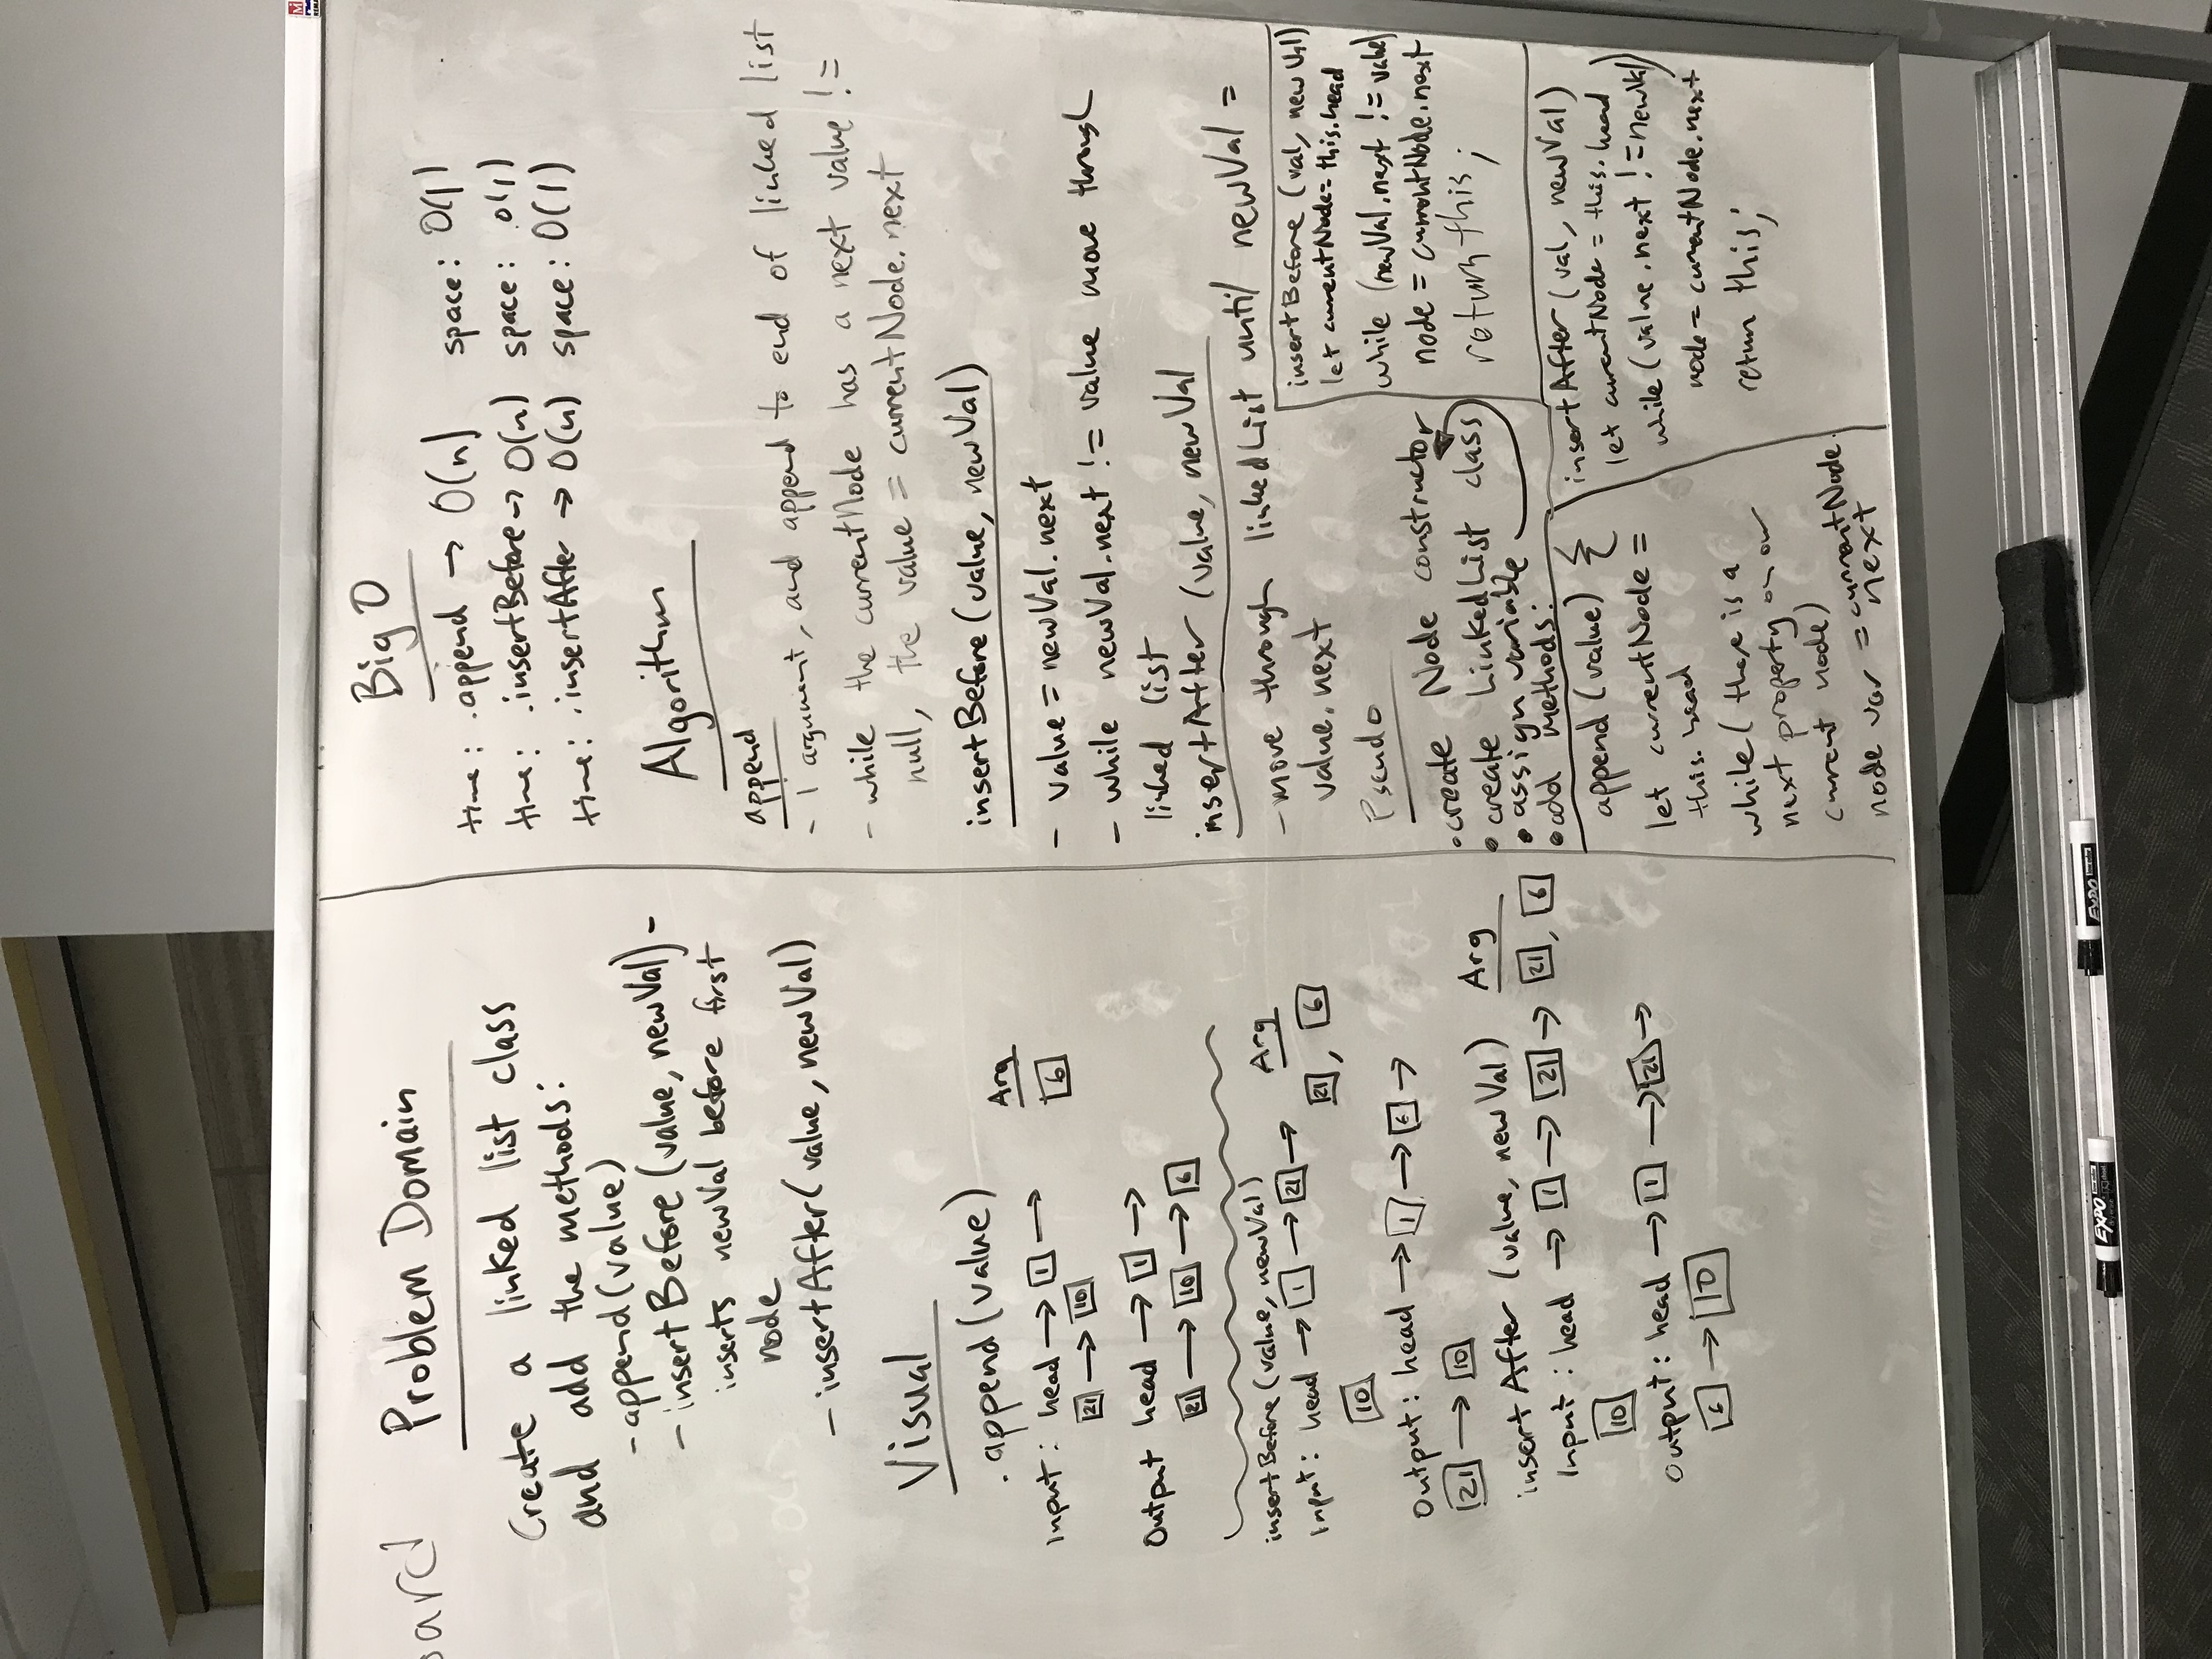 Problem Domain
Create a linked list class
and add the methods:
- append(value)
- insertBefore (value, newVal) -
inserts newVal before first
node
- insertAfter(value, newVal)
Visual
.append(value)
Arg
Input: head → 1 →
6
21 → 10
Output head → 1 →
21 → 10 → 6
insertBefore (value, newVal)
Arg
Input: head → 1 → 21 →
21, 6
10
Output: head → 1 → 6 →
21 → 10
insertAfter (value, newVal)
Arg
Input: head → 1 → 21 →
21, 6
10
Output: head → 1 → 21 →
6 → 10
Big O
time: .append → O(n) space: O(1)
time: .insertBefore → O(n) space: O(1)
time: .insertAfter → O(n) space: O(1)
Algorithm
append
- 1 argument, and append to end of linked list
- while the currentNode has a next value !=
null, the value = currentNode.next
insertBefore (value, newVal)
- value = newVal.next
- while newVal.next != value move through
linked list
insertAfter (value, newVal
- move through linkedList until newVal =
value.next
Pseudo
• create Node constructor
• create LinkedList class
• assign variable
• add methods:
append (value) {
let currentNode =
this.head
while( there is a
next property on our
current node)
node var = currentNode.
next
insertBefore (val, newVal)
let currentNode = this.head
while (newVal.next != value)
node = currentNode.next
return this;
insertAfter (val, newVal)
let currentNode = this.head
while (value.next != newVal)
node = currentNode.next
return this;
EXPO
EXPO